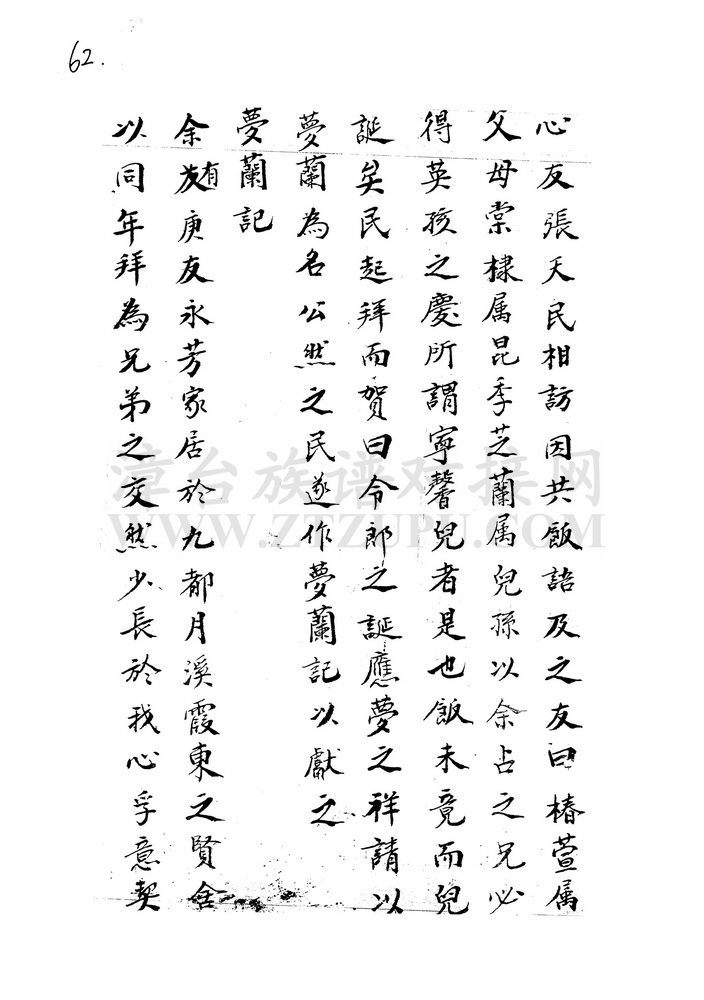 62.
心友張天民相訪因共飯語及之友曰椿萱属
父母棠棣属昆季芝蘭属兒孫以余占之兄必
得英孩之慶所謂寧馨兒者是也飯未竟而兒
誕矣民起拜而賀曰令郎之誕應夢之祥請以
夢蘭為名公然之民遂作夢蘭記以獻之
夢蘭記
余有庚友永芳家居於九都月溪霞東之賢舍
以同年拜為兄弟之交然少長於我心孚意契
漳台族谱对接网
WWW.ZTZUPU.COM